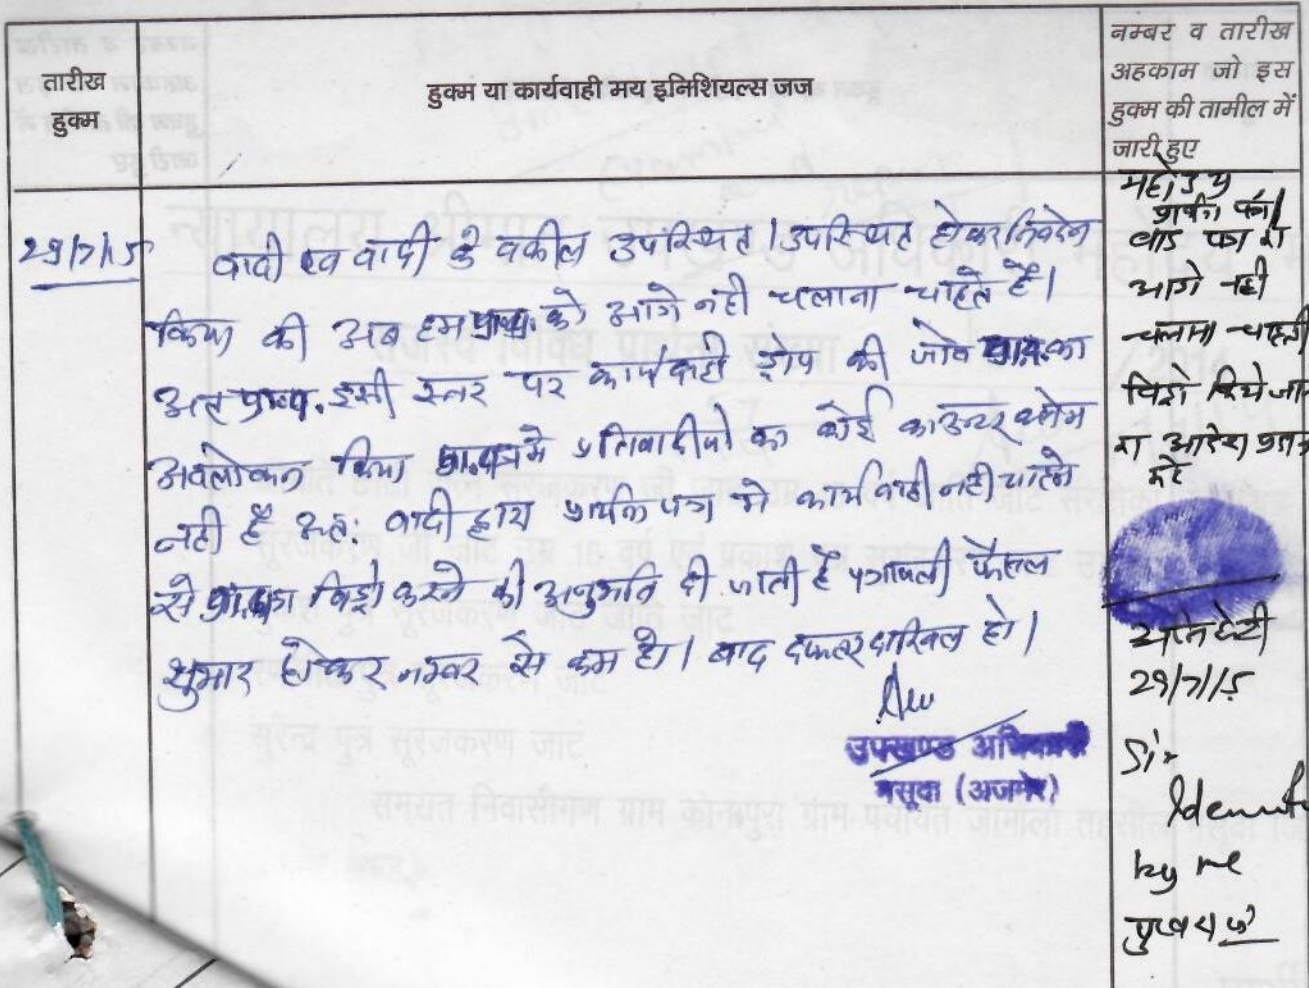 तारीख
हुक्म
हुक्म या कार्यवाही मय इनिशियल्स जज
नम्बर व तारीख
अहकाम जो इस
हुक्म की तामील में
जारी हुए
29/7/15
वादी एव वादी के वकील उपस्थित। उपस्थित होकर निवेदन
किया की अब हम को आगे नही चलाना चाहते है।
अत इसी स्तर पर कार्यवाही ड्रोप की जावे का
अवलोकन किया मे प्रतिवादीयो का कोई काउन्टर क्लेम
नही है अत: वादी द्वारा प्रार्थना पत्र मे कार्यवाही नही चाहने
से विड्रो करने की अनुमति दी जाती है पत्रावली फैसल
शुमार होकर नम्बर से कम हो। बाद दफ्तर दाखिल हो।
उपखण्ड अधिकारी
मसूदा (अजमेर)
महोदय
आगे नही
चलाना चाहती
विड्रो किये जाने
का आदेश
करे
29/7/15
Sir
by me